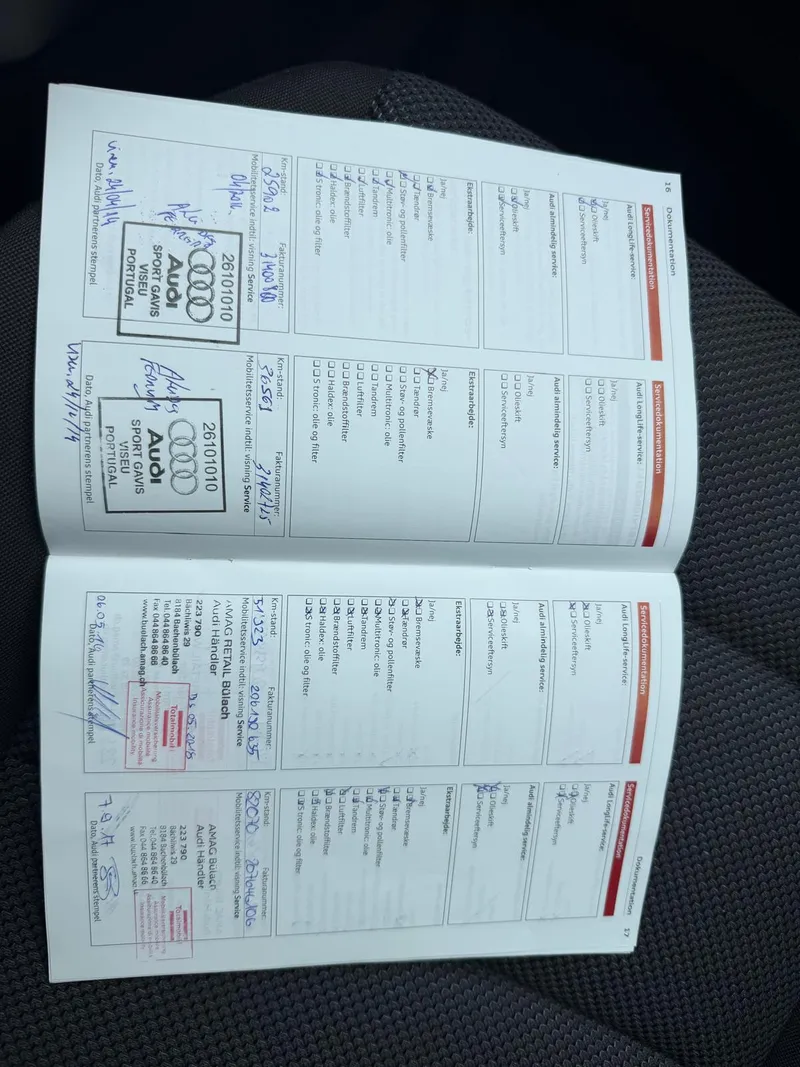 16 Dokumentation
Servicedokumentation
Audi LongLife-service:
Ja/nej
Olieskift
Serviceeftersyn
Audi almindelig service:
Ja/nej
Olieskift
Serviceeftersyn
Ekstraarbejde:
Ja/nej
Bremsevæske
Tændrør
Støv- og pollenfilter
Multitronic: olie
Tandrem
Luftfilter
Brændstoffilter
Haldex: olie
S tronic: olie og filter
Km-stand: Fakturanummer:
25902 31400860
Mobilitetsservice indtil: visning Service
26101010
Audi
SPORT GAVIS
VISEU
PORTUGAL
Viseu, 24/04/14
Dato, Audi partnerens stempel
Servicedokumentation
Audi LongLife-service:
Ja/nej
Olieskift
Serviceeftersyn
Audi almindelig service:
Ja/nej
Olieskift
Serviceeftersyn
Ekstraarbejde:
Ja/nej
Bremsevæske
Tændrør
Støv- og pollenfilter
Multitronic: olie
Tandrem
Luftfilter
Brændstoffilter
Haldex: olie
S tronic: olie og filter
Km-stand: Fakturanummer:
36561 31402725
Mobilitetsservice indtil: visning Service
26101010
Audi
SPORT GAVIS
VISEU
PORTUGAL
Dato, Audi partnerens stempel
Servicedokumentation
Audi LongLife-service:
Ja/nej
Olieskift
Serviceeftersyn
Audi almindelig service:
Ja/nej
Olieskift
Serviceeftersyn
Ekstraarbejde:
Ja/nej
Bremsevæske
Tændrør
Støv- og pollenfilter
Multitronic: olie
Tandrem
Luftfilter
Brændstoffilter
Haldex: olie
S tronic: olie og filter
Km-stand: Fakturanummer:
51323 206190635
Mobilitetsservice indtil: visning Service
AMAG RETAIL Bülach
Audi Händler
223 790
Bächliwis 29
8184 Bachenbülach
Tel. 044 864 86 40
Fax 044 864 86 66
www.buelach.amag.ch
05.2018
Totalmobil!
Mobilitätsversicherung
Assurance mobilité
Assicurazione di mobilità
Insurance mobility
06.05.16
Dato, Audi partnerens stempel
Dokumentation 17
Servicedokumentation
Audi LongLife-service:
Ja/nej
Olieskift
Serviceeftersyn
Audi almindelig service:
Ja/nej
Olieskift
Serviceeftersyn
Ekstraarbejde:
Ja/nej
Bremsevæske
Tændrør
Støv- og pollenfilter
Multitronic: olie
Tandrem
Luftfilter
Brændstoffilter
Haldex: olie
S tronic: olie og filter
Km-stand: Fakturanummer:
207646106
Mobilitetsservice indtil: visning Service
AMAG Bülach
Audi Händler
223 790
Bächliwis 29
8184 Bachenbülach
Tel. 044 864 86 40
Fax 044 864 86 66
Totalmobil!
7.9.17
Dato, Audi partnerens stempel